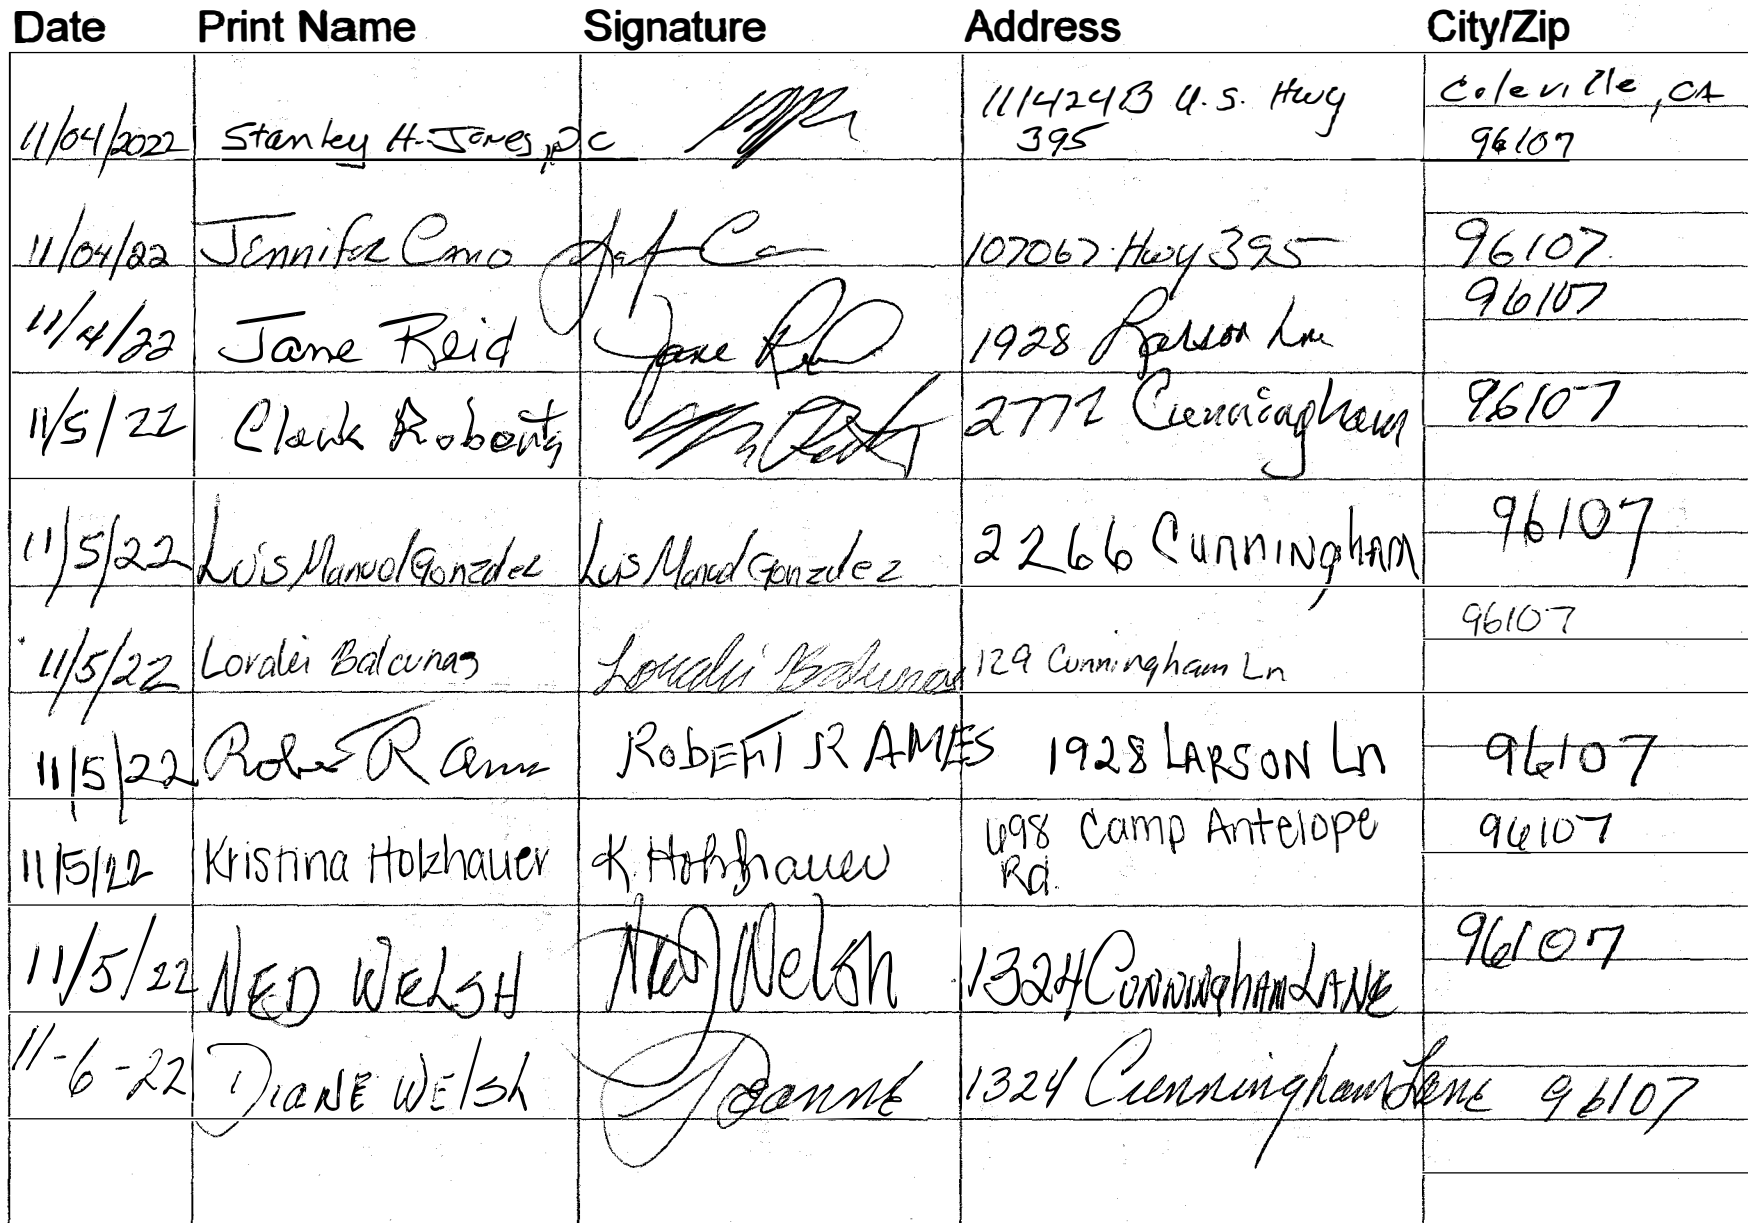 Date Print Name Signature Address City/Zip
11/04/2022 Stanley H. Jones, D.C 111424B U.S. Hwy Coleville, CA
395 96107
11/04/22 Jennifer 107067 Hwy 395 96107
11/4/22 Jane Reid Jane Reid 1928 Larson Ln 96107
11/5/22 Clark Roberts 2772 Cunningham 96107
11/5/22 Luis Manuel Gonzalez Luis Manuel Gonzalez 2266 Cunningham 96107
11/5/22 Loralei Balcunas Loralei Balcunas 129 Cunningham Ln 96107
11/5/22 Robert R Ames ROBERT R AMES 1928 LARSON Ln 96107
11/5/22 Kristina Holzhauer K. Holzhauer 698 Camp Antelope 96107
Rd.
11/5/22 NED WELSH Ned Welsh 1324 CUNNINGHAM LANE 96107
11-6-22 DIANE WELSh 1324 Cunningham Lane 96107